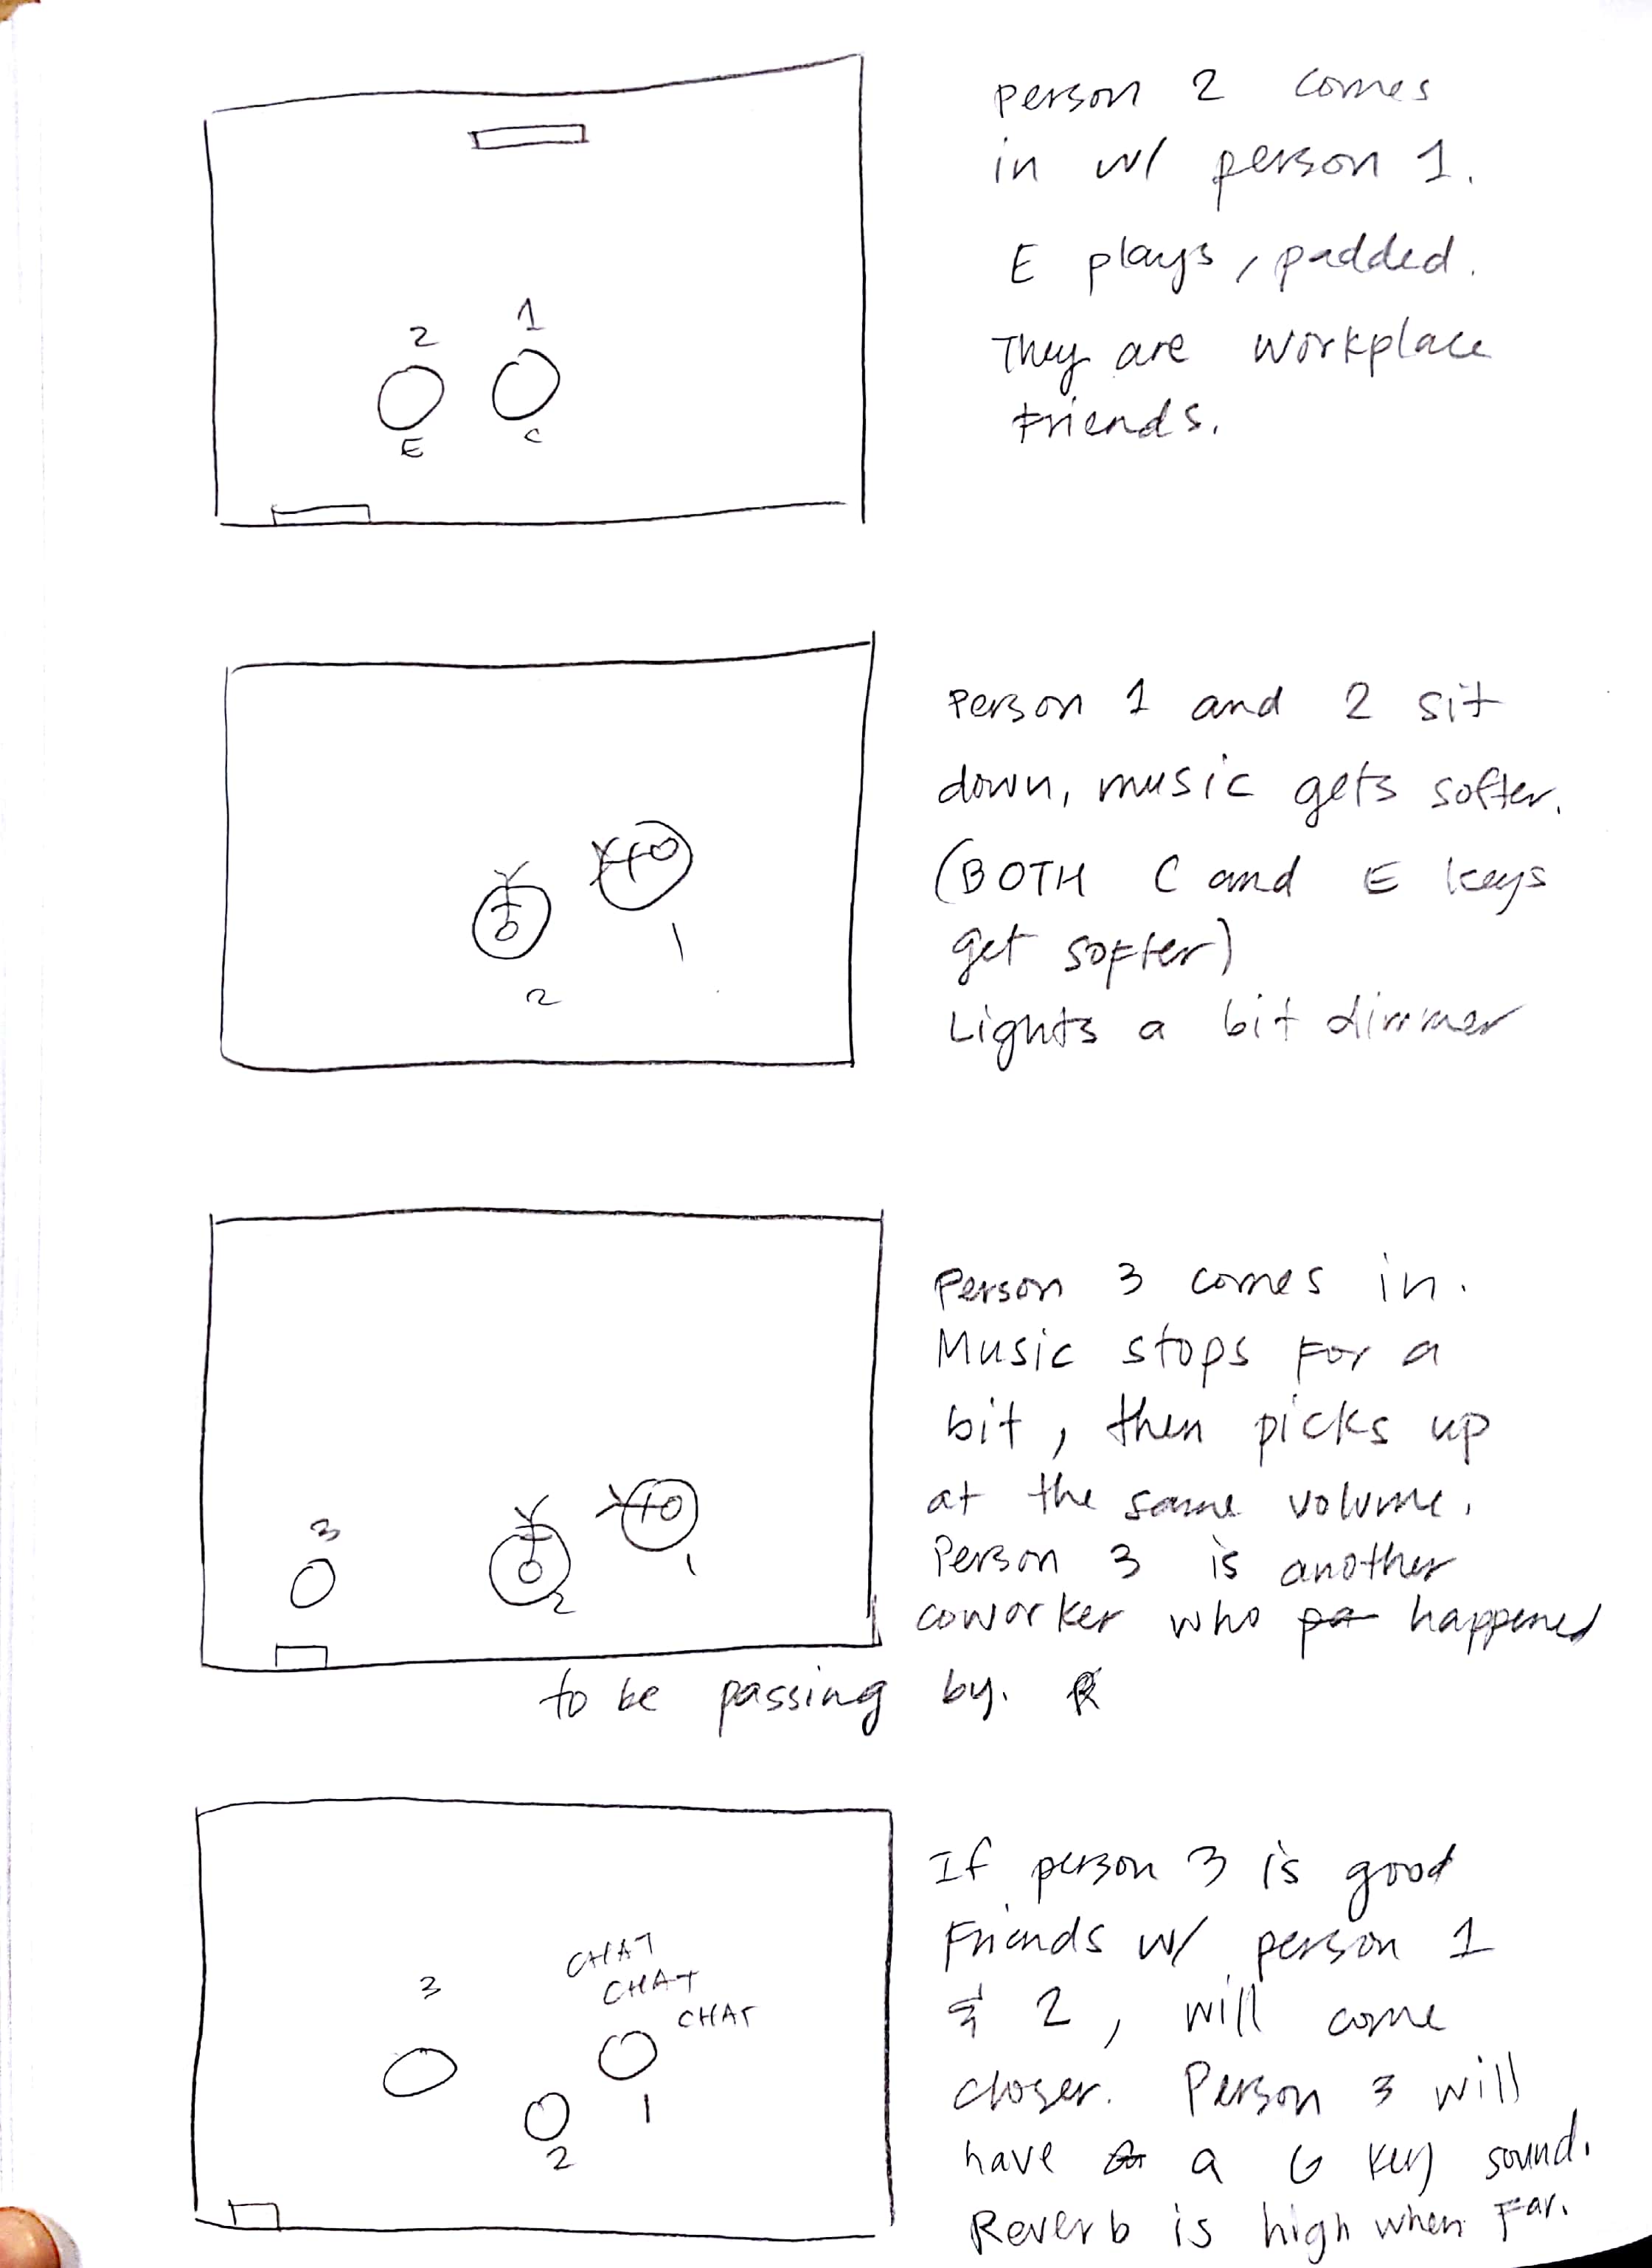 person 2 comes
in w/ person 1.
E plays, padded.
They are workplace
friends.
2 1
E C
Person 1 and 2 sit
down, music gets softer.
(BOTH C and E keys
get softer)
Lights a bit dimmer
1
2
Person 3 comes in.
Music stops for a
bit, then picks up
at the same volume.
Person 3 is another
coworker who happened
to be passing by.
3
1
2
If person 3 is good
friends w/ person 1
& 2, will come
closer. Person 3 will
have a G key sound.
Reverb is high when far.
CHAT
CHAT
CHAT
3
1
2